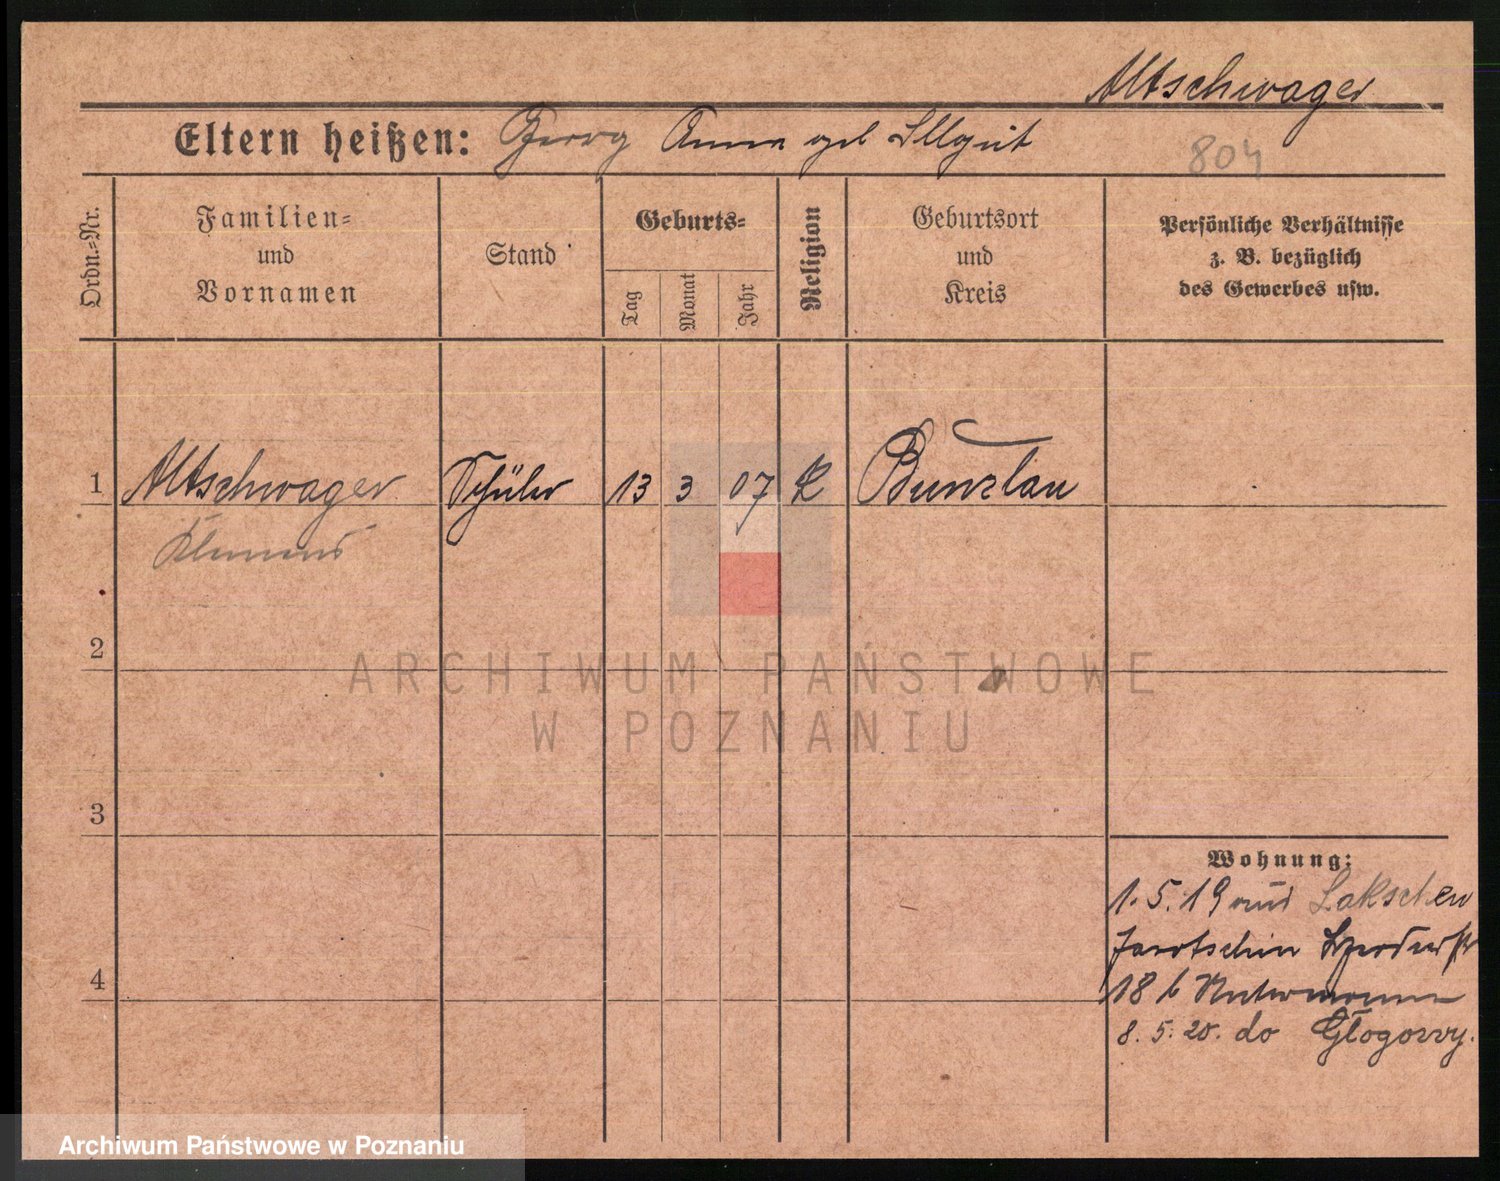 Altschwager
Eltern heißen: Georg Anna geb Illgut
804
Ordn.=Nr.
Familien=
und
Vornamen
Stand
Geburts=
Tag
Monat
Jahr
Religion
Geburtsort
und
Kreis
Persönliche Verhältnisse
z. B. bezüglich
des Gewerbes usw.
1 Altschwager Schüler 13 3 07 K Bunzlau
Klemens
2
3
4
Wohnung:
1.5.19 aus Lakschen
Jarotschin
18 b
8.5.20. do Głogowy.
ARCHIWUM PAŃSTWOWE
W POZNANIU
Archiwum Państwowe w Poznaniu